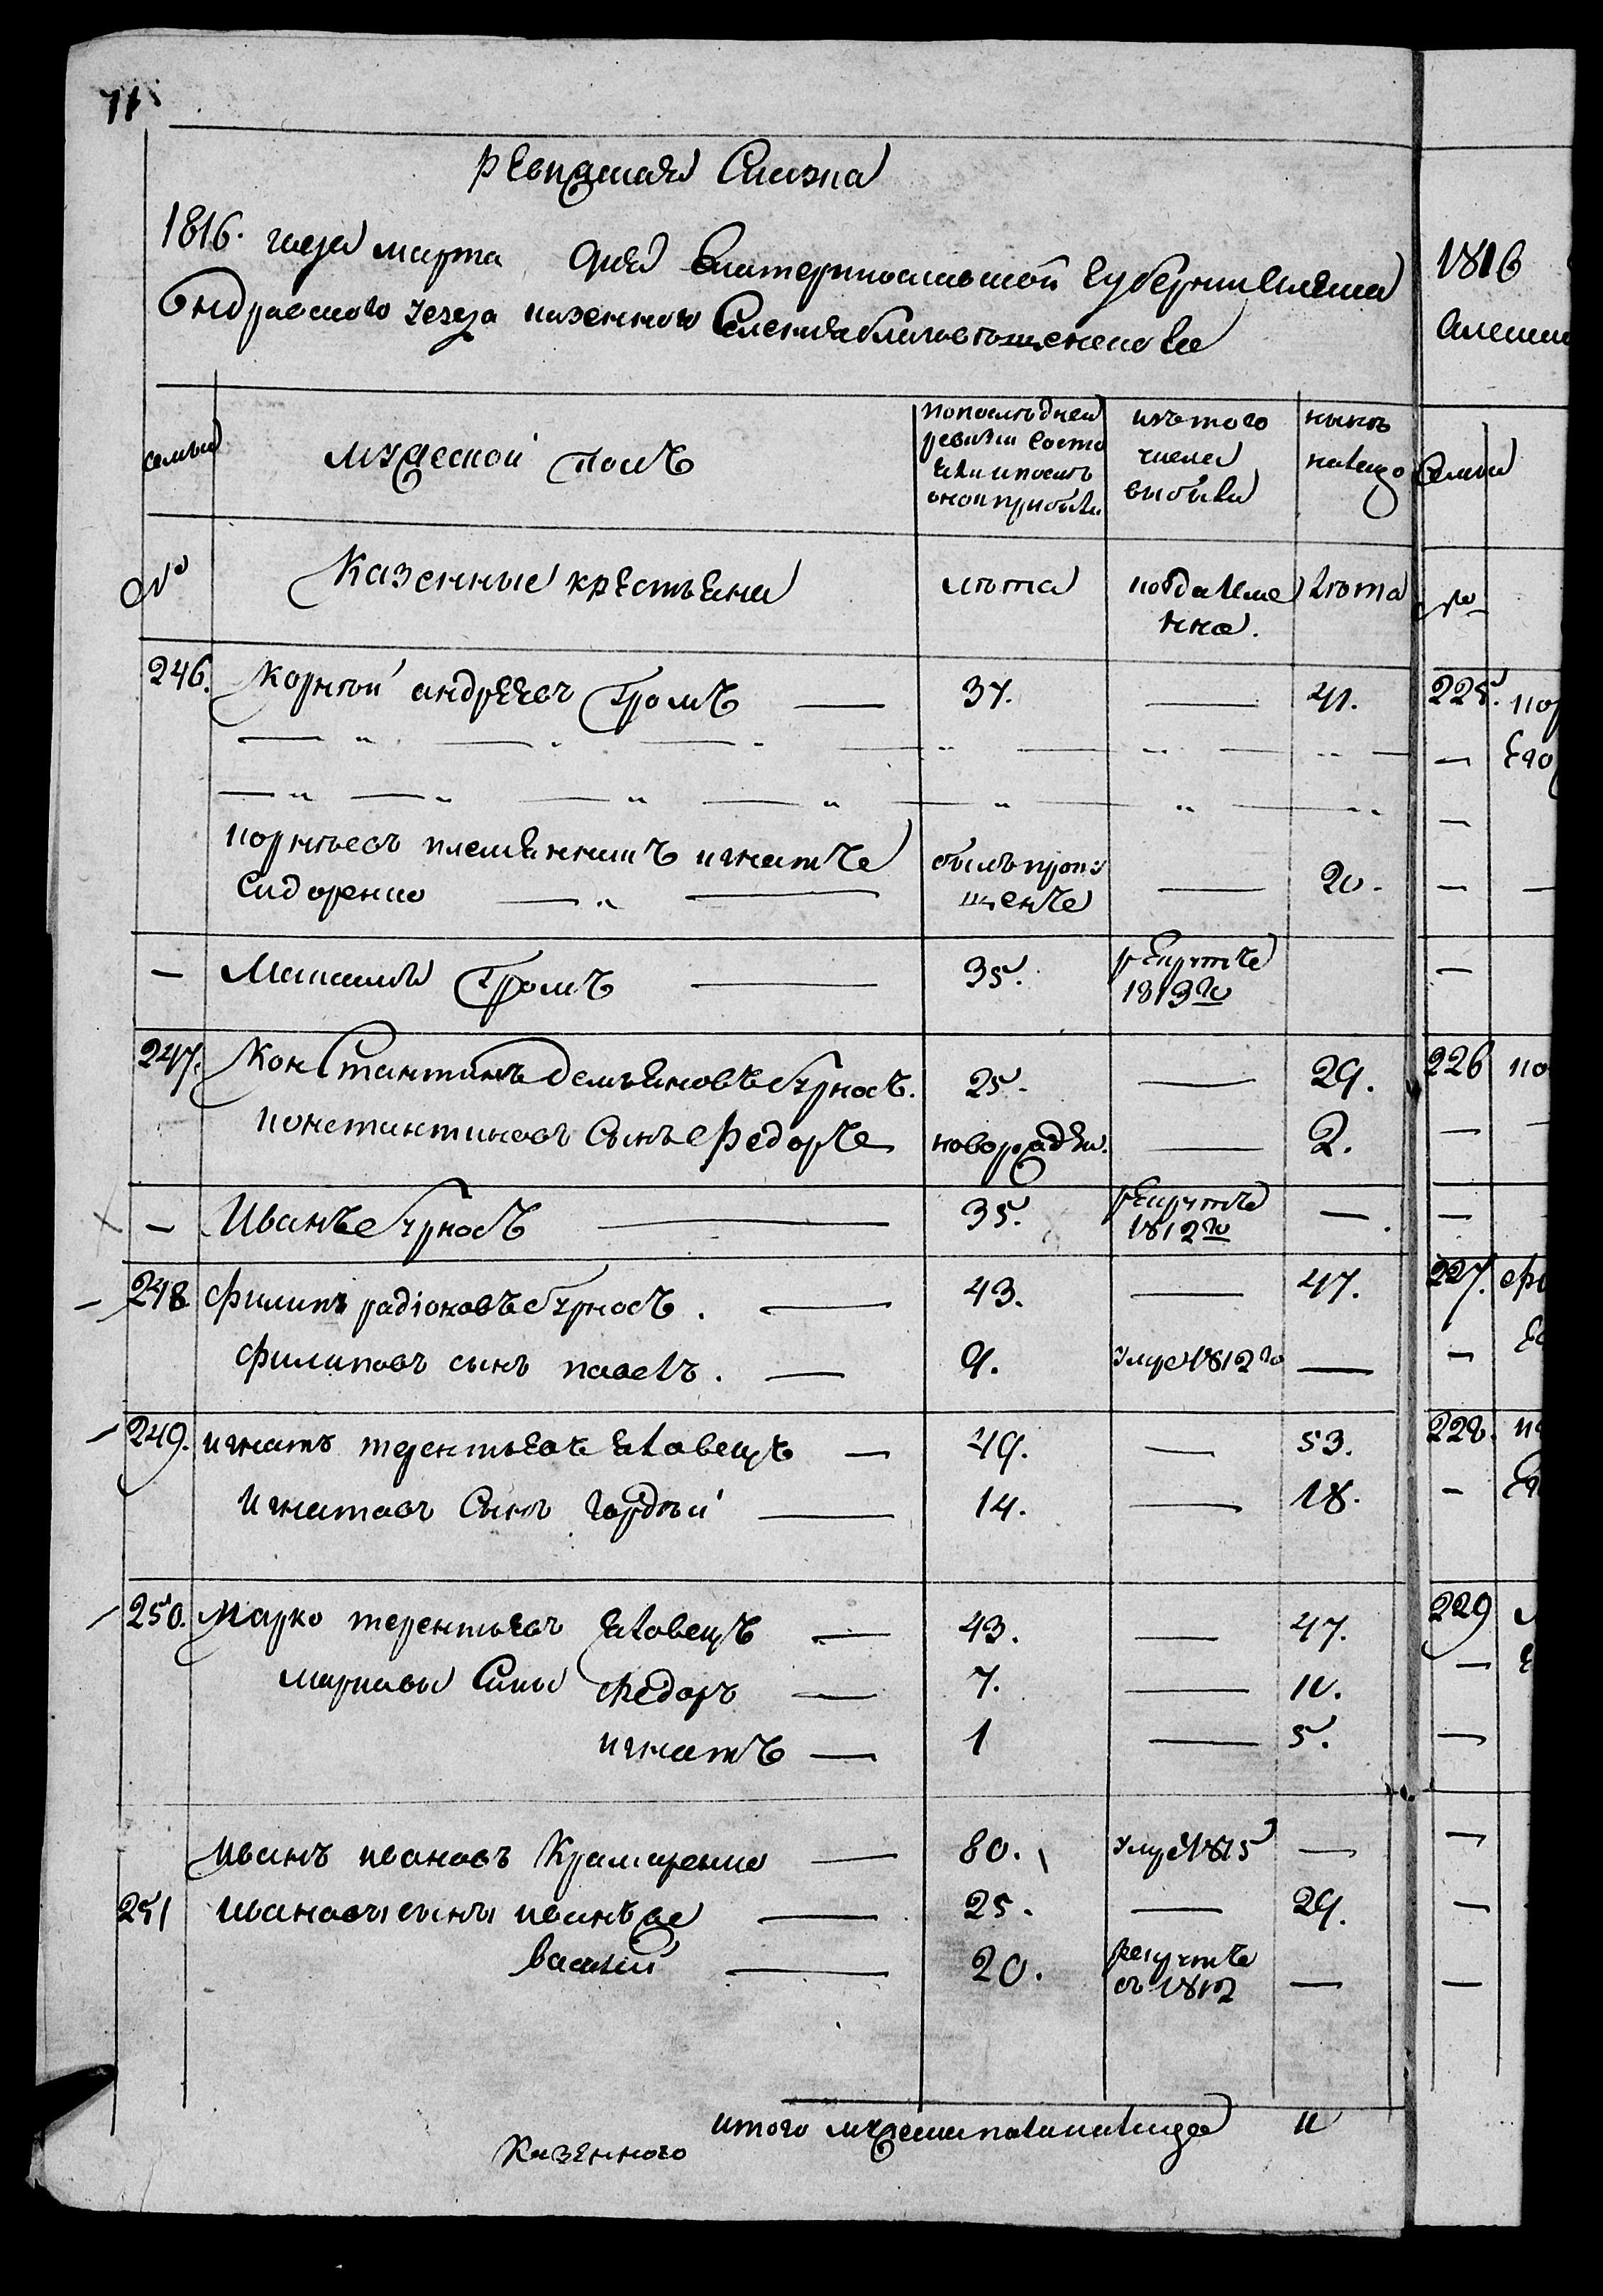 71
Ревижская Сказка
1816. года марта дня Екатеринославской губернии Алекса
ндровского уезда казенного Селения благовещенского
семьи
мужеской полъ
попоследней
ревизии состо
яли и после
оной прибыли
изъ того
числа
выбыли
ныне
налицо
№
Казенные крестьяне
лета
когда име
нно.
лета
246. Корней андреевъ Громъ — 37. — 41.
корнеевъ племянникъ игнатъ
Сидоренко — былъ пропу
щенъ — 20.
— Максимъ Громъ — 35. рекрутъ
1813го
247. Константинъ демьяновъ бурносъ. 25. — 29.
константиновъ Сынъ Федоръ новорожден. — 2.
— Иванъ бурносъ — 35. рекрутъ
1812го —.
248 филипъ радіоновъ бурносъ. — 43. — 47.
филиповъ сынъ павелъ. — 9. умре 1812го —
249. игнатъ терентьевъ яловецъ — 49. — 53.
Игнатовъ Сынъ гордей — 14. — 18.
250. Марко терентьевъ яловецъ — 43. — 47.
марковы Сыны Федоръ — 7. — 10.
игнатъ — 1 — 5.
Иванъ ивановъ Крамаренко — 80. умре 1815 —
251 ивановы сыны иванъ — 25. — 29.
василій — 20. рекрутъ
съ 1812 —
итого мужеска пола налицо 11
Казенного
1816
Семьи
№
225.
226
227.
228.
229